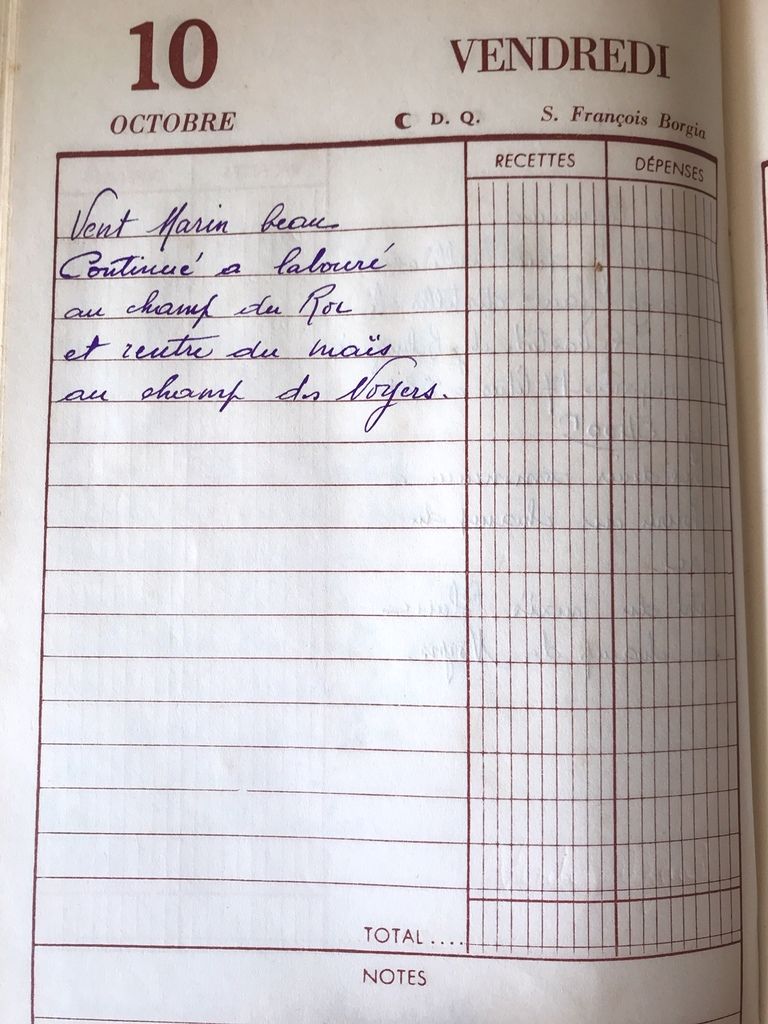 10 VENDREDI
OCTOBRE ☾ D. Q. S. François Borgia
RECETTES DÉPENSES
Vent Marin beau
Continué a labouré
au champ du Roc
et rentre du maïs
au champ ds Noyers.
TOTAL ....
NOTES